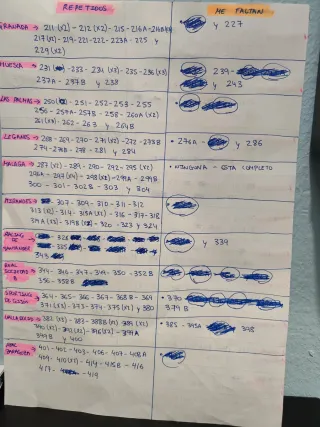 REPETIDOS
ME FALTAN
GRANADA → 211 (x2) - 212 (x2) - 215 - 216A - 216B
217 (x2) - 219 - 221 - 222 - 223A - 225 y
229 (x2)
y 227
HUESCA → 231 - 233 - 234 (x3) - 235 - 236 (x3)
237A - 237B y 238
239 -
y 243
LAS PALMAS → 250 - 251 - 252 - 253 - 255
256 - 257A - 257B - 258 - 260A (x2)
261 (x3) - 262 - 263 y 264B
LEGANES → 268 - 269 - 270 - 271 (x2) - 272 - 273B
274 - 276B - 278 - 281 y 284
• 276A - y 286
MALAGA → 287 (x2) - 289 - 290 - 292 - 295 (x2)
296A - 297 (x4) - 298 (x2) - 299A - 299B
300 - 301 - 302B - 303 y 304
• NINGUNA - ESTA COMPLETO
MIRANDES → - 307 - 309 - 310 - 311 - 312
313 - 314 - 315A (x2) - 316 - 317 - 318
319A (x3) - 319B (x2) - 320 - 323 y 324
RACING DE SANTANDER → 328
325
343
y 339
REAL SOCIEDAD → 344 - 345 - 347 - 349 - 350 - 352B
356 - 358B
SPORTING DE GIJON → 364 - 365 - 366 - 367 - 368B - 369
371 (x3) - 373 - 374 - 375 (x2) y 380
• 370
379B
VALLADOLID → 382 (x2) - 383 - 388B - 389 (x2)
390 (x2) - 392 (x2) - 396 (x2) - 397A
399B y 400
• 385 - 395A - 398
REAL ZARAGOZA → 401 - 402 - 403 - 405 - 407 - 408A
409 - 410 (x2) - 414 - 415B - 416
417 - 419